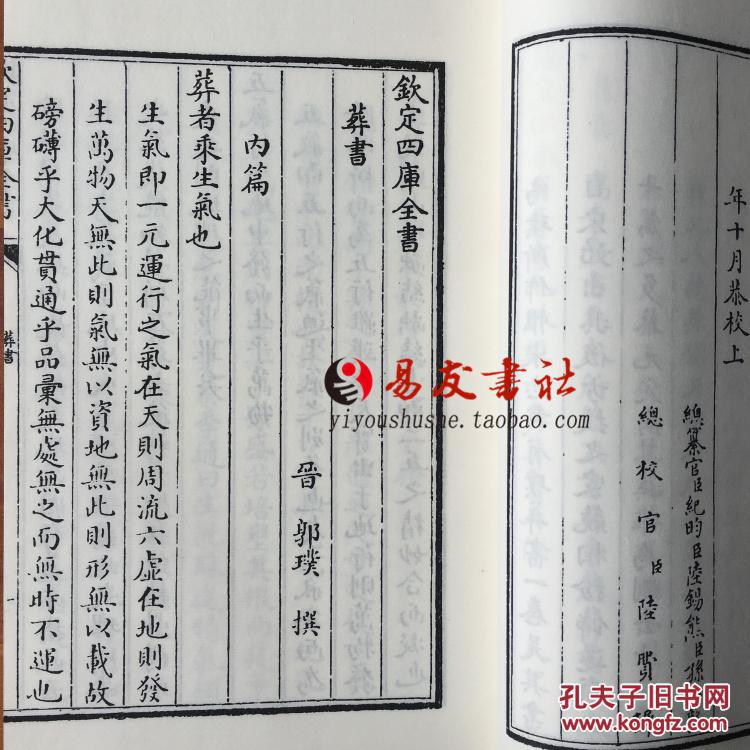 年十月恭校上
總纂官臣紀昀臣陸錫熊臣孫
總校官臣陸費墀
欽定四庫全書
葬書
晉 郭璞 撰
内篇
葬者乘生氣也
生氣即一元運行之氣在天則周流六虛在地則發
生萬物天無此則氣無以資地無此則形無以載故
磅礴乎大化貫通乎品彙無處無之而無時不運也
欽定四庫全書
葬書
一
易友書社
yiyoushushe.taobao.com
孔夫子旧书网
www.kongfz.com